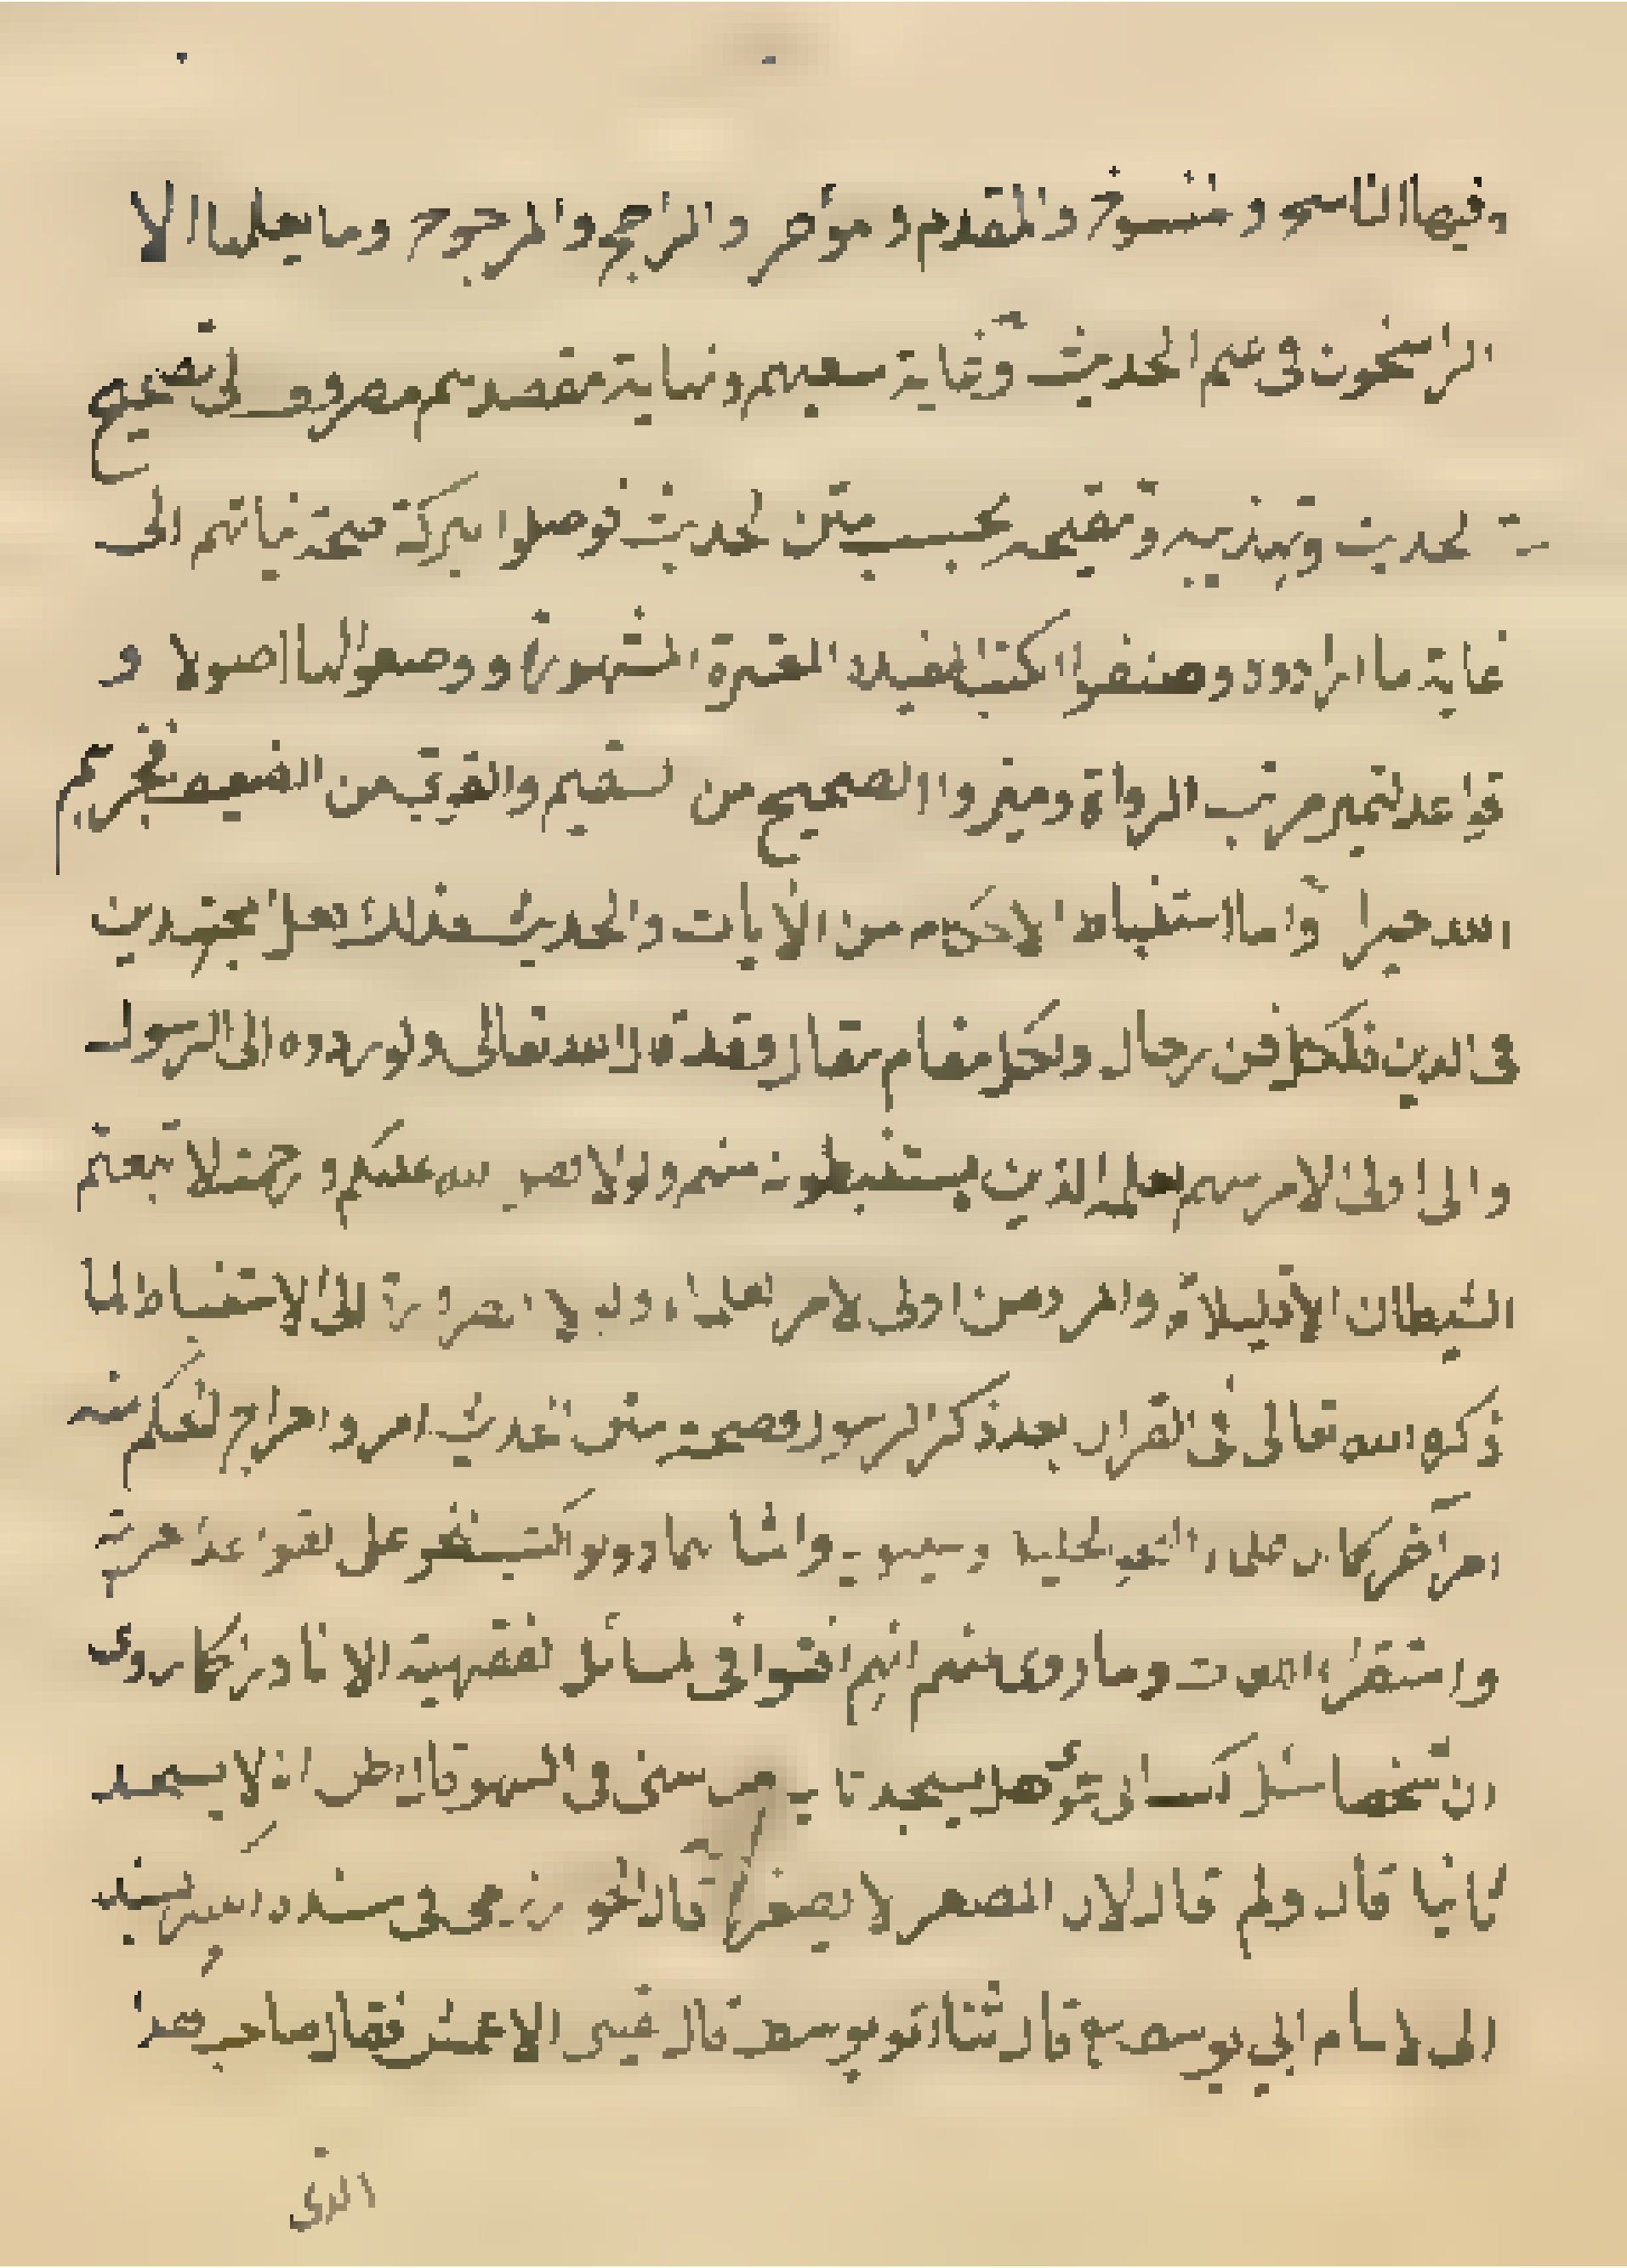 فيها الناسخ و منسوخ والمقدم و مؤخر والراجح والمرجوح وما يعلمها الا
الراسخون فى علم الحديث وغاية سعيهم ونهاية مقصدهم مصروف لى تصحيح
لحديث وتهذيبه وتنقيحه بحسب متن لحديث فوصلوا ببركة صحة نياتهم الى
غاية ما ارادوه وصنفوا كتبا مفيده المعتبرة المشهورة ووضعوا لها اصولا و
قواعد لتميز مرتب الرواة وميزوا الصحيح من لسقيم والقوى من الضعيف فجزيهم
الله خيرا واما استنباط الاحكام من الآيات والحديث فذلك لعل مجتهدين
فى الدين فلكل فن رجال ولكل مقام مقال وقد قال الله تعالى ولو ردوه الى الرسول
والى اولى الامر منهم لعلمه الذين يستنبطونه منهم ولولا فضل الله عليكم ورحمته لاتبعتم
الشيطان الا قليلا والمراد من اولى لامر لعلماء ولولا الى الاستنباط لما
ذكره الله تعالى فى القران بعد ذكر الرسول فصحة متن الحديث امر واخراج لحكم منه
امر آخر كما ان علماء النحو الخليل وسيبويه وامثالهما دونوا كتب نحو على لقواعد عربية
واستقراء اللغات وما روى عنهم انهم افتوا فى لمسائل لفقهية الا نادرا كما روى
ان شخصا سئل كسائى هل يسجد من سهى فى السهو قال لا يسجد
ثانيا قال ولم قال لان المصغر لا يصغر قال الخوارزمى فى مسنده بسند
الى لامام ابي يوسف قال ثنا ابو يوسف قال الاعمش فقال صاحب هذا
الذى